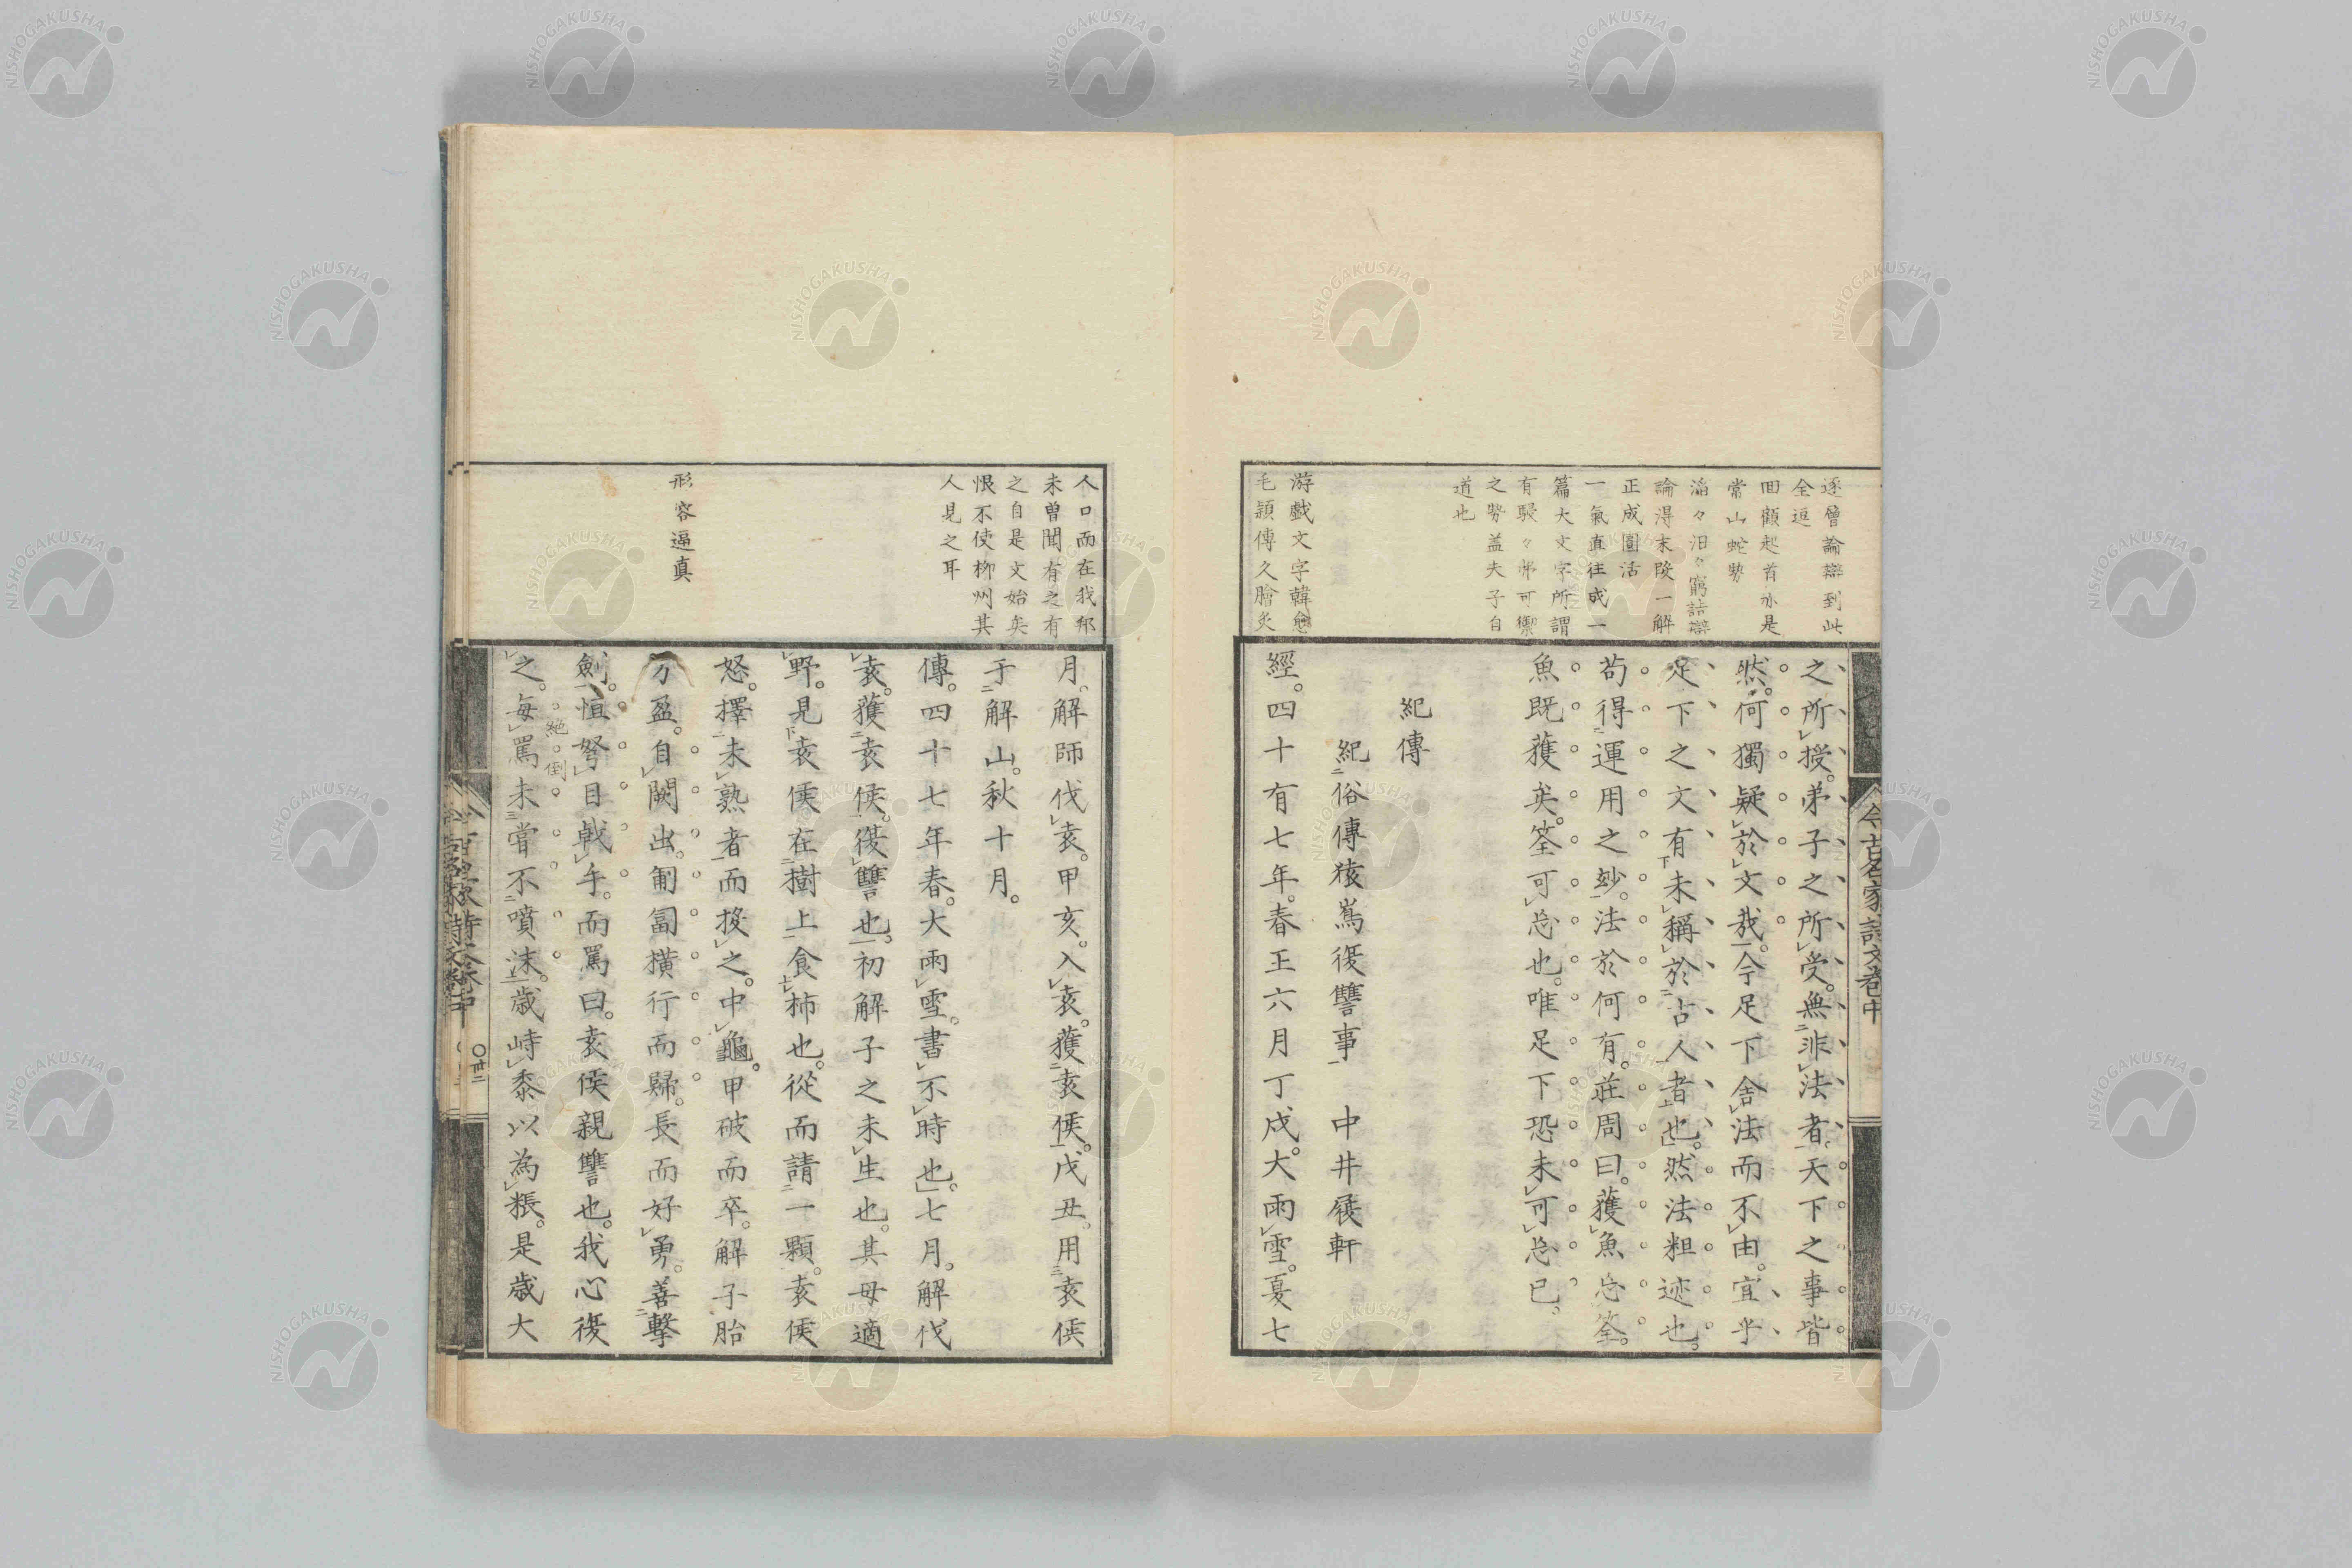 逐層論辯到此
全逗
囬顧起首亦是
常山蛇勢
滔々汨々窮詰辯
論得末段一解
正成圓活
一氣直往成一
篇大文字所謂
有駸々乎可禦
之勢盖夫子自
道也
游戯文字韓愈
毛穎傳久膾炙
今古名家詩文卷中
之所授。弟子之所受。無非法者。天下之事皆
然。何獨疑於文哉。今足下舍法而不由。宜乎
足下之文有未稱於古人者也。然法粗迹也。
苟得運用之玅。法於何有。莊周曰。獲魚忘筌。
魚既獲矣。筌可忘也。唯足下恐未可忘已。
紀傳
紀俗傳猿蟹復讐事 中井履軒
經。四十有七年。春王六月丁戌。大雨雪。夏七
人口而在我邦
未曽聞有之有
之自是文始矣
恨不使柳州其
人見之耳
形容逼真
月。解師伐袁。甲亥。入袁。獲袁侯。戊丑。用袁侯
于解山。秋十月。
傳。四十七年春。大雨雪。書不時也。七月。解伐
袁。獲袁侯。復讐也。初解子之未生也。其母適
野。見袁侯在樹上食柿也。從而請一顆。袁侯
怒。擇未熟者而投之。中龜。甲破而卒。解子胎
方盈。自闕出。匍匐橫行而歸。長而好勇。善擊
劍。恒弩目戟手。而罵曰。袁侯親讐也。我心復
之。每罵未嘗不噴沫。歲峙黍以為粻。是歲大
絶倒
今古名家詩文卷中
〇卅二
NISHOGAKUSHA